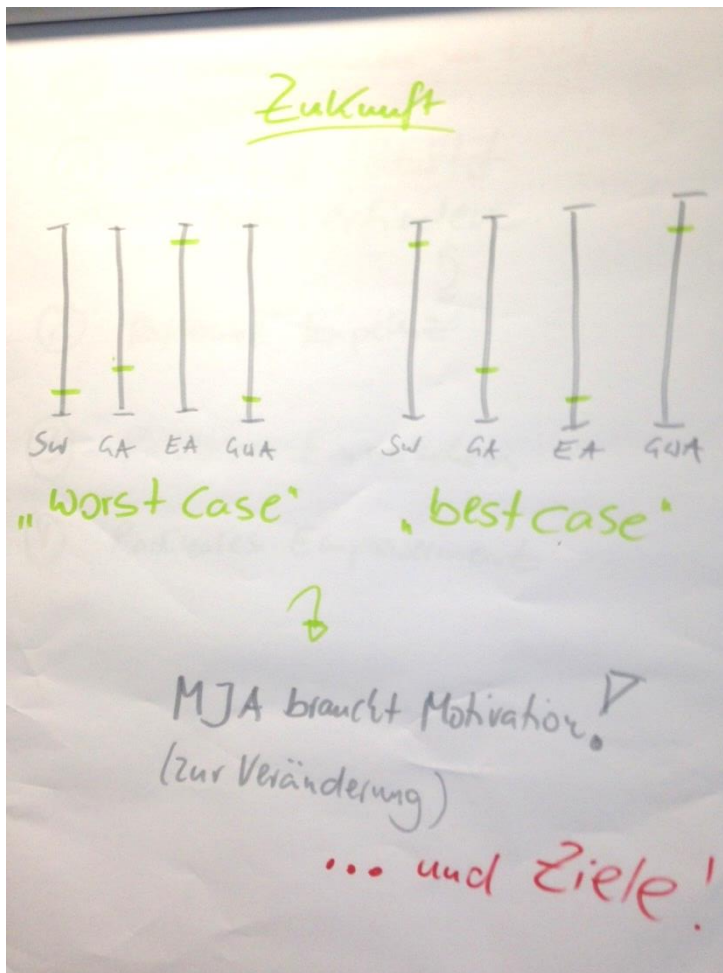 Zukunft
SW GA EA GWA SW GA EA GWA
„worst case“ „best case“
MJA braucht Motivation!
(zur Veränderung)
... und Ziele!